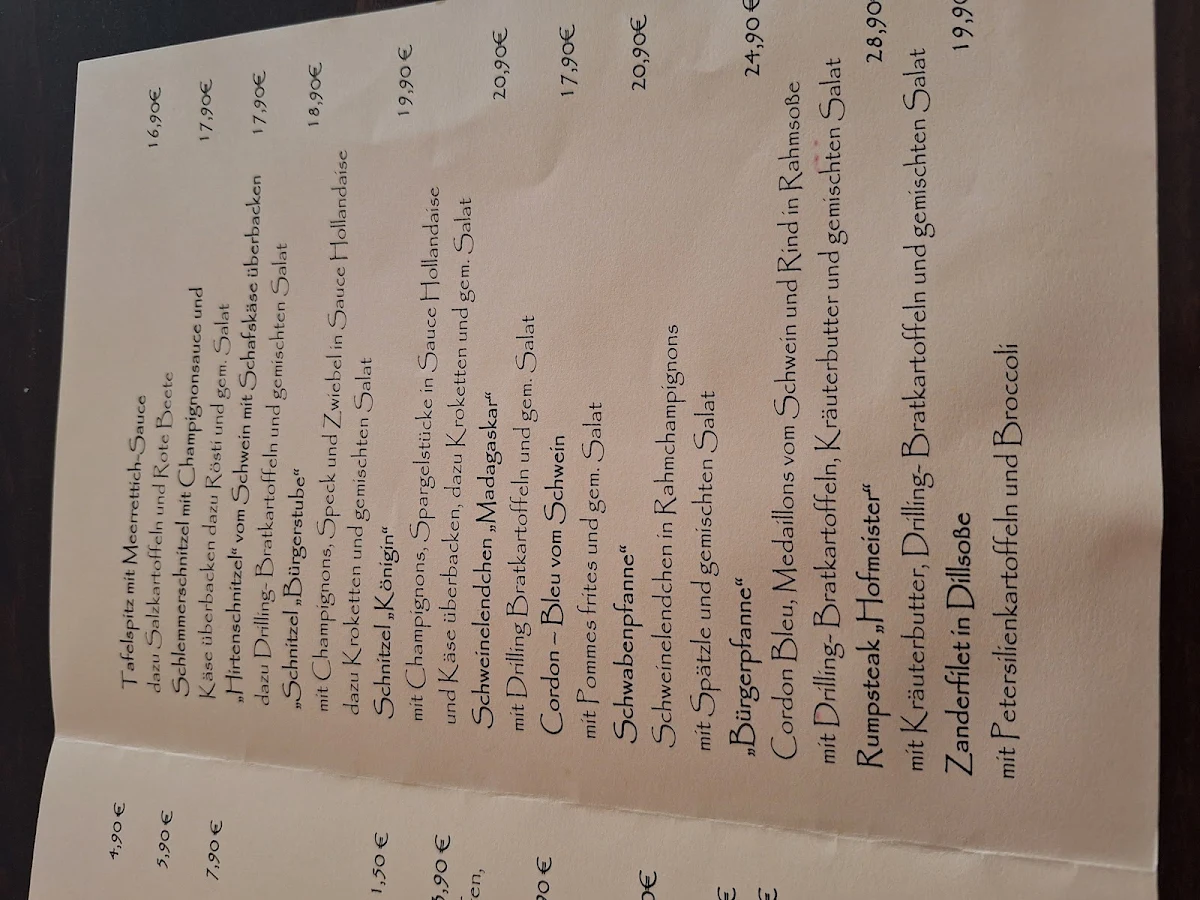 4,90 €
5,90 €
7,90 €
1,50 €
,90 €
en,
90 €
€
€
€
Tafelspitz mit Meerrettich-Sauce 16,90€
dazu Salzkartoffeln und Rote Beete
Schlemmerschnitzel mit Champignonsauce und 17,90€
Käse überbacken dazu Rösti und gem. Salat
„Hirtenschnitzel“ vom Schwein mit Schafskäse überbacken 17,90€
dazu Drilling- Bratkartoffeln und gemischten Salat
„Schnitzel „Bürgerstube“ 18,90€
mit Champignons, Speck und Zwiebel in Sauce Hollandaise
dazu Kroketten und gemischten Salat
Schnitzel „Königin“ 19,90 €
mit Champignons, Spargelstücke in Sauce Hollandaise
und Käse überbacken, dazu Kroketten und gem. Salat
Schweinelendchen „Madagaskar“ 20,90€
mit Drilling Bratkartoffeln und gem. Salat
Cordon – Bleu vom Schwein 17,90€
mit Pommes frites und gem. Salat
Schwabenpfanne“ 20,90€
Schweinelendchen in Rahmchampignons
mit Spätzle und gemischten Salat
„Bürgerpfanne“ 24,90 €
Cordon Bleu, Medaillons vom Schwein und Rind in Rahmsoße
mit Drilling- Bratkartoffeln, Kräuterbutter und gemischten Salat
Rumpsteak „Hofmeister“ 28,90
mit Kräuterbutter, Drilling- Bratkartoffeln und gemischten Salat
Zanderfilet in Dillsoße 19,90
mit Petersilienkartoffeln und Broccoli